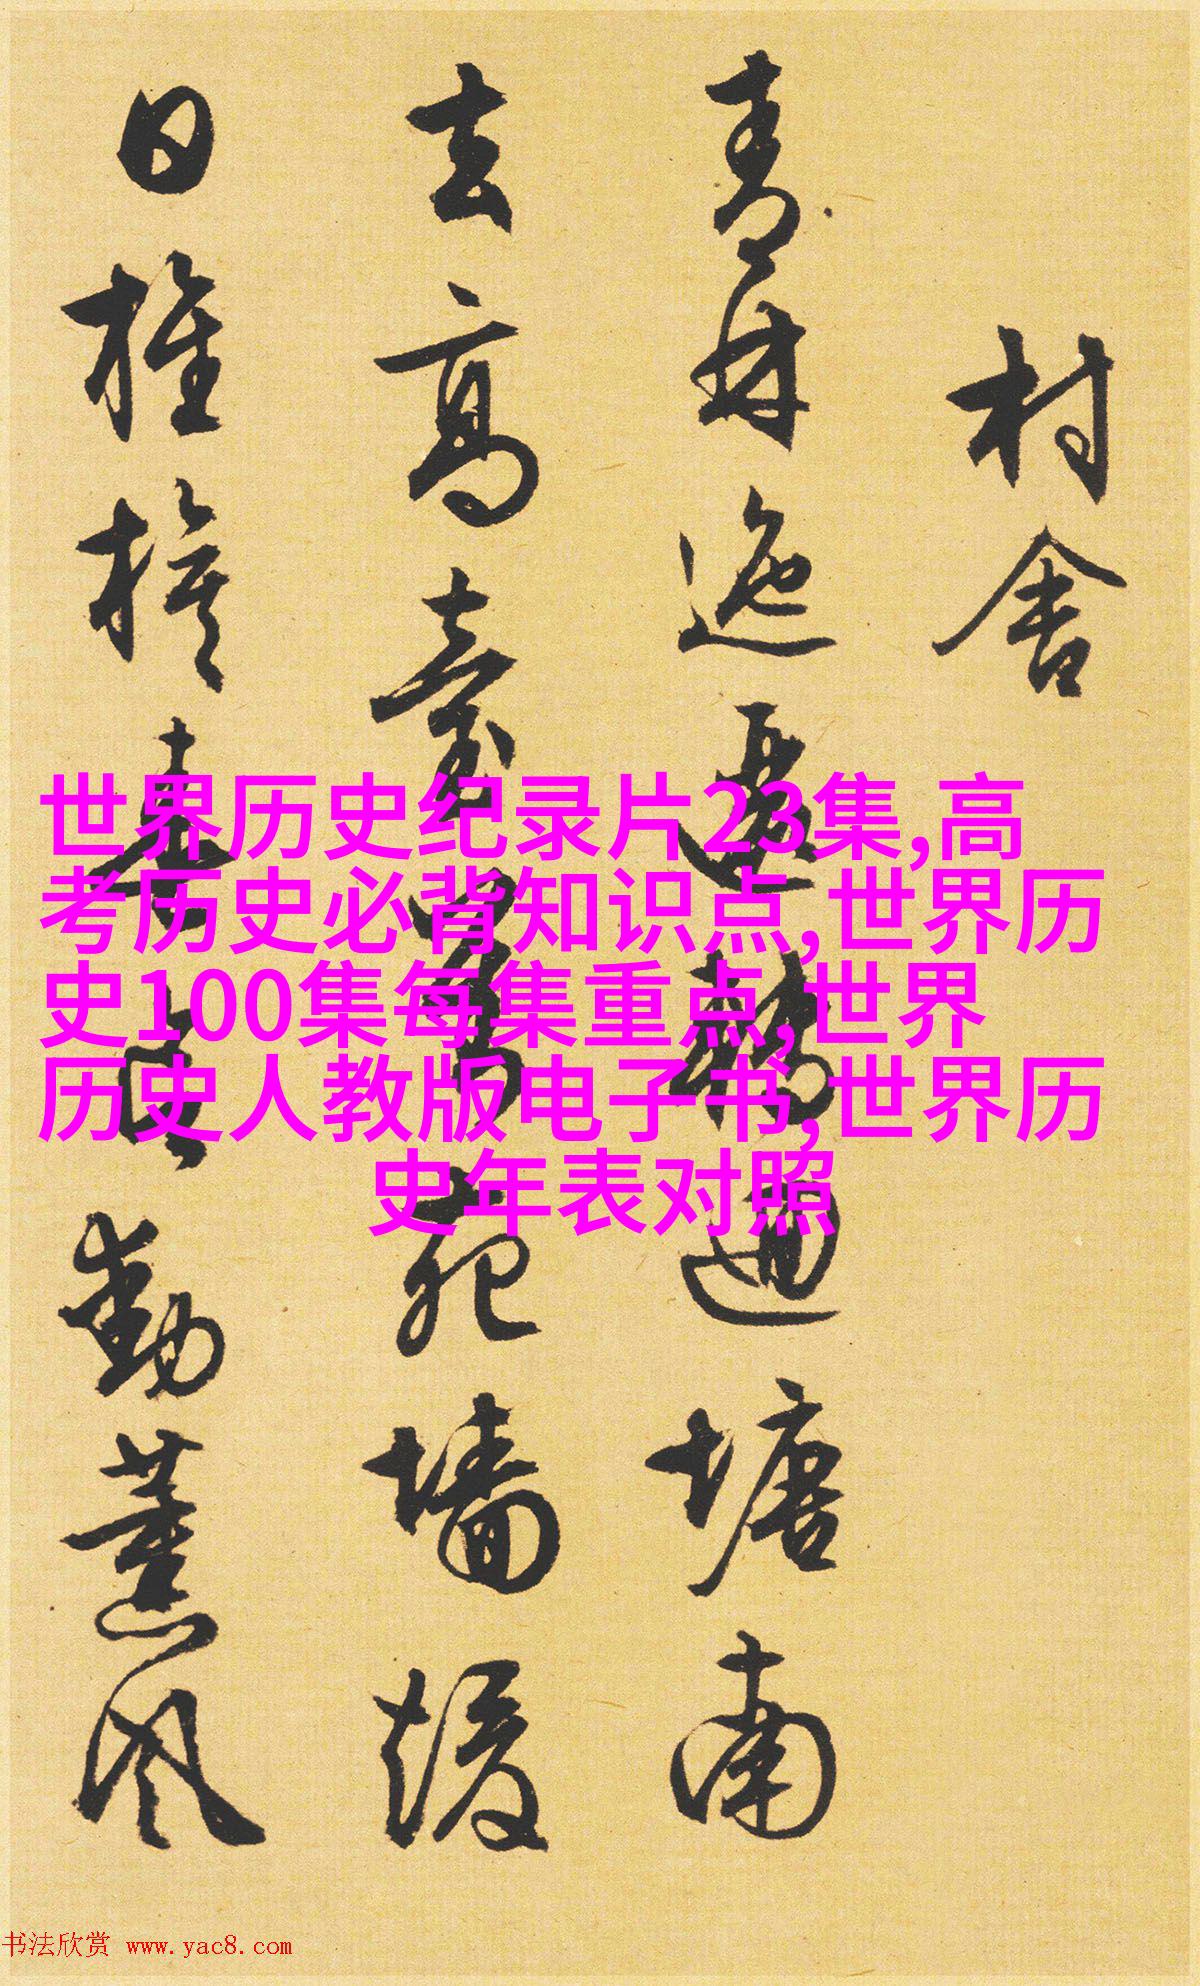 村舍
青林迤邐轉迴塘南
去高臺
花墙煖
日摧
勤薰风
世界历史纪录片23集,高
考历史必背知识点,世界历
史100集每集重点,世界
历史人教版电子书,世界历
史年表对照
书法欣赏 www.yac8.com